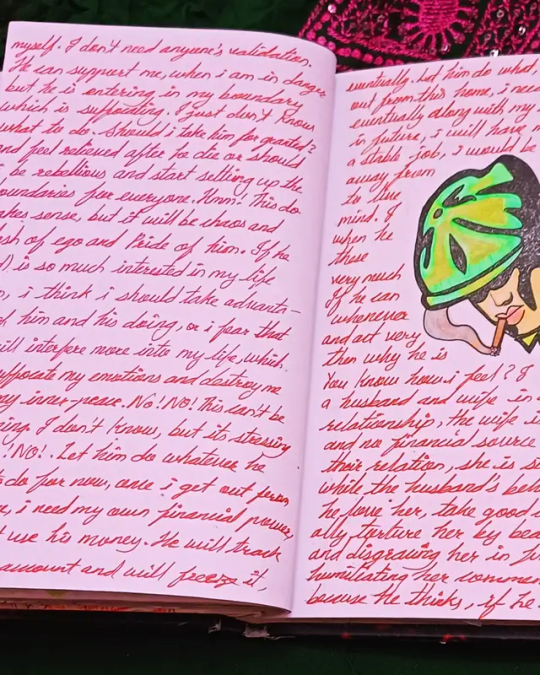 myself. I don't need anyone's validation.
He can support me, when i am in danger
but he is entering in my boundary
which is suffocating. I just don't know
what to do. should i take him for granted?
and feel relieved after he die or should
i be rebellious and start setting up the
boundaries for everyone. Hmm! This do
makes sense, but it will be chaos and
clash of ego and Pride of him. If he
is so much interested in my life
i think i should take advanta-
him and his doing, or i fear that
will interfere more into my life, which
suffocate my emotions and destroy me
my inner-peace. No! No! This can't be
I don't know, but its stressing
! No! . Let him do whatever he
do for now, once i get out from
i need my own financial power,
use his money. He will track
account and will freeze it,
eventually. Let him do what
out from this home, i need
eventually along with my
in future, i will have
a stable job, i would be
away from
to live
mind. I
when he
those
very much
If he can
whenever
and act very
then why he is
You know how i feel? I
a husband and wife in
relationship, the wife is
and no financial source
their relation, she is
while the husband's
he love her, take good
ally torture her by
and disgracing her in
humiliating her
because he thinks, if he